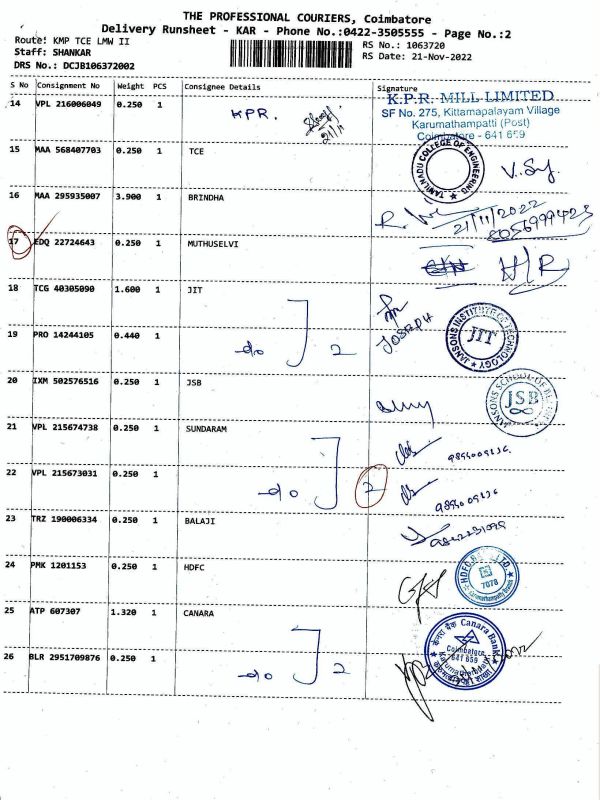 THE PROFESSIONAL COURIERS, Coimbatore
Delivery Runsheet - KAR - Phone No.:0422-3505555 - Page No.:2
Route: KMP TCE LMW II
RS No.: 1063720
Staff: SHANKAR
RS Date: 21-Nov-2022
DRS No.: DCJB106372002
S No Consignment No Weight PCS Consignee Details Signature
14 VPL 216006049 0.250 1 KPR.
K.P.R. MILL LIMITED
SF No. 275, Kittamapalayam Village
Karumathampatti (Post)
Coimbatore - 641 659
15 MAA 568407703 0.250 1 TCE
TAMILNADU COLLEGE OF ENGINEERING
16 MAA 295935007 3.900 1 BRINDHA
21/11/2022
8056999423
17 EDQ 22724643 0.250 1 MUTHUSELVI
H/R
18 TCG 40305090 1.600 1 JIT
JANSONS INSTITUTE OF TECHNOLOGY
JIT
19 PRO 14244105 0.440 1 do 2
20 IXM 502576516 0.250 1 JSB
JANSONS SCHOOL OF
JSB
21 VPL 215674738 0.250 1 SUNDARAM
22 VPL 215673031 0.250 1 do 2
23 TRZ 190006334 0.250 1 BALAJI
24 PMK 1201153 0.250 1 HDFC
HDFC BANK LTD.
7078
Karumathampatti Branch
25 ATP 607307 1.320 1 CANARA
केनरा बैंक Canara Bank
Coimbatore
641 659
26 BLR 2951709876 0.250 1 do 2